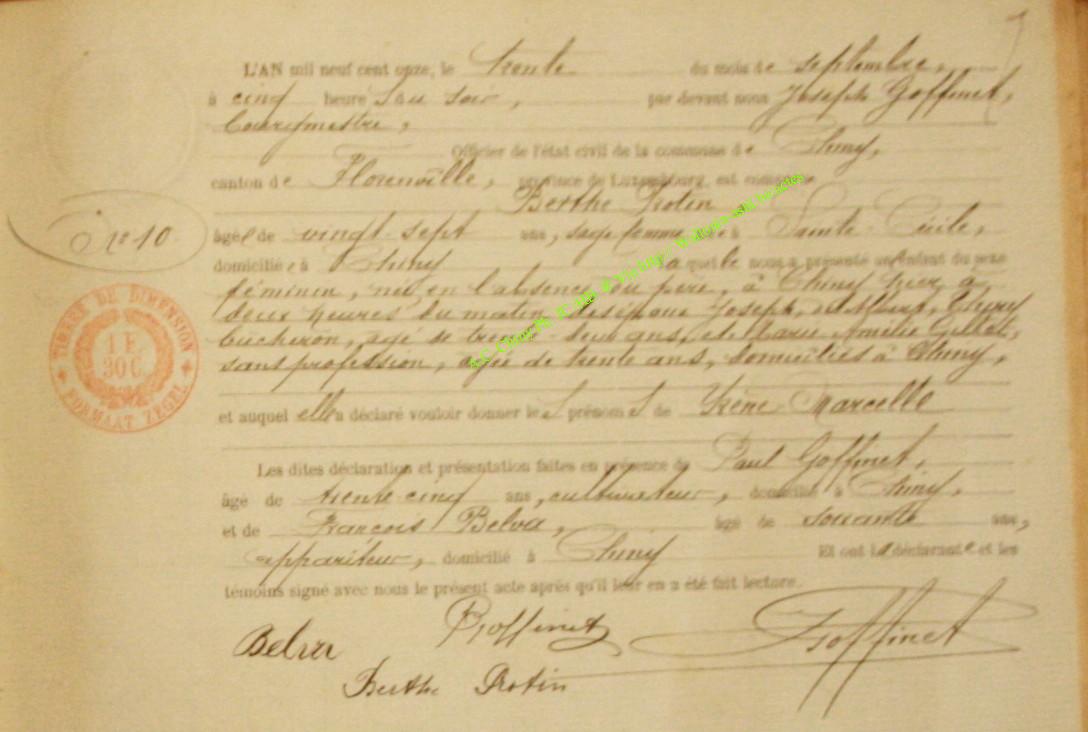 L'AN mil neuf cent onze, le trente du mois de septembre,
à cinq heures du soir, par devant nous Joseph Goffinet,
bourgmestre,
Officier de l'état civil de la commune de Chiny,
canton de Florenville, province de Luxembourg, est comparue
Berthe Protin
âgée de vingt-sept ans, sage femme née à Sainte-Cécile,
N° 10
domiciliée à Chiny laquelle nous a présenté un enfant du sexe
féminin, née, en l'absence du père, à Chiny hier, à
deux heures du matin, Joseph,
bûcheron, âgé de trente-deux ans, et de Marie Amélie
sans profession, âgée de trente ans, domiciliés à Chiny,
TIMBRE DE DIMENSION
1 F.
30 C.
FORMAAT ZEGEL
et auquel elle a déclaré vouloir donner les prénoms de Irène Marcelle
Les dites déclaration et présentation faites en présence de Paul Goffinet,
âgé de trente-cinq ans, cultivateur, domicilié à Chiny,
et de François Belva, âgé de soixante ans,
appariteur, domicilié à Chiny Et ont la déclarante et les
témoins signé avec nous le présent acte après qu'il leur en a été fait lecture.
Belva PGoffinet JGoffinet
Berthe Protin